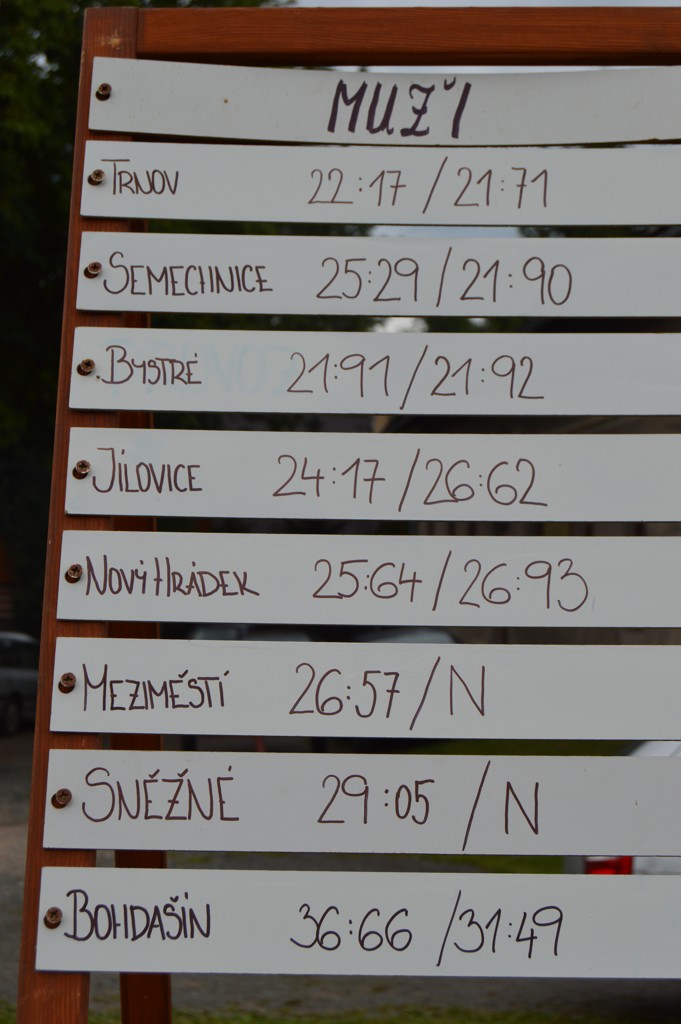 MUŽI
TRNOV 22:17 / 21:71
SEMECHNICE 25:29 / 21:90
BYSTRÉ 21:91 / 21:92
JÍLOVICE 24:17 / 26:62
NOVÝ HRÁDEK 25:64 / 26:93
MEZIMĚSTÍ 26:57 / N
SNĚŽNÉ 29:05 / N
BOHDAŠÍN 36:66 / 31:49